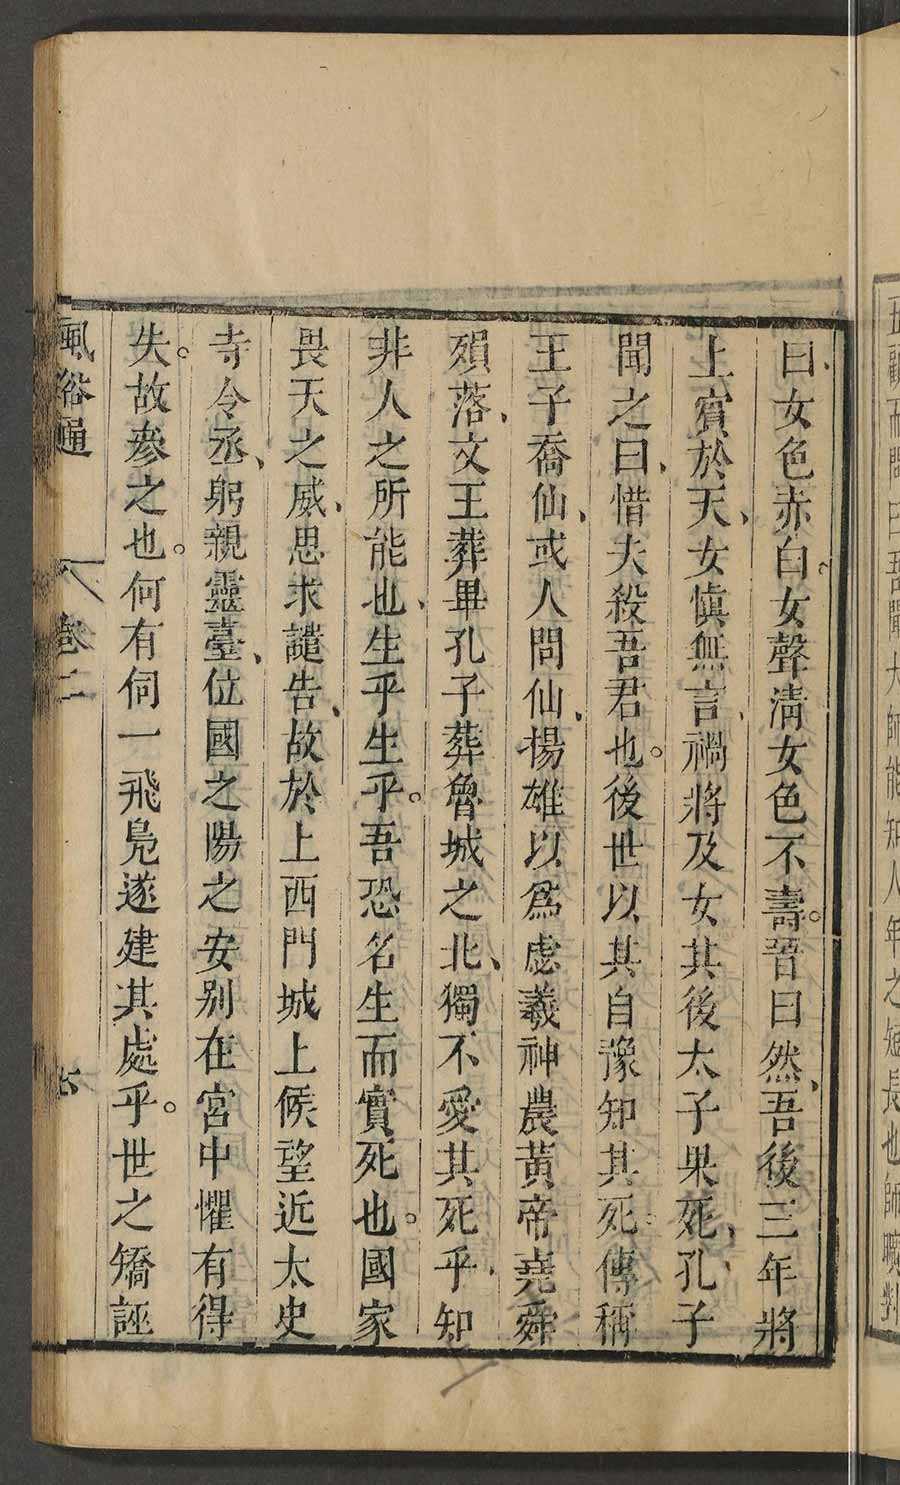 五觀而問曰吾聞太師能知人年之短長也師曠對
曰女色赤白女聲清女色不壽吾曰然吾後三年將
上賓於天女慎無言禍將及女其後太子果死孔子
聞之曰惜夫殺吾君也後世以其自豫知其死傳稱
王子喬仙或人問仙揚雄以爲虙羲神農黃帝堯舜
殞落文王葬畢孔子葬魯城之北獨不愛其死乎知
非人之所能也生乎生乎吾恐名生而實死也國家
畏天之威思求譴告故於上西門城上候望近太史
寺令丞躬親靈臺位國之陽之安别在宮中懼有得
失故參之也何有伺一飛鳧遂建其處乎世之矯誣
風俗通 卷二